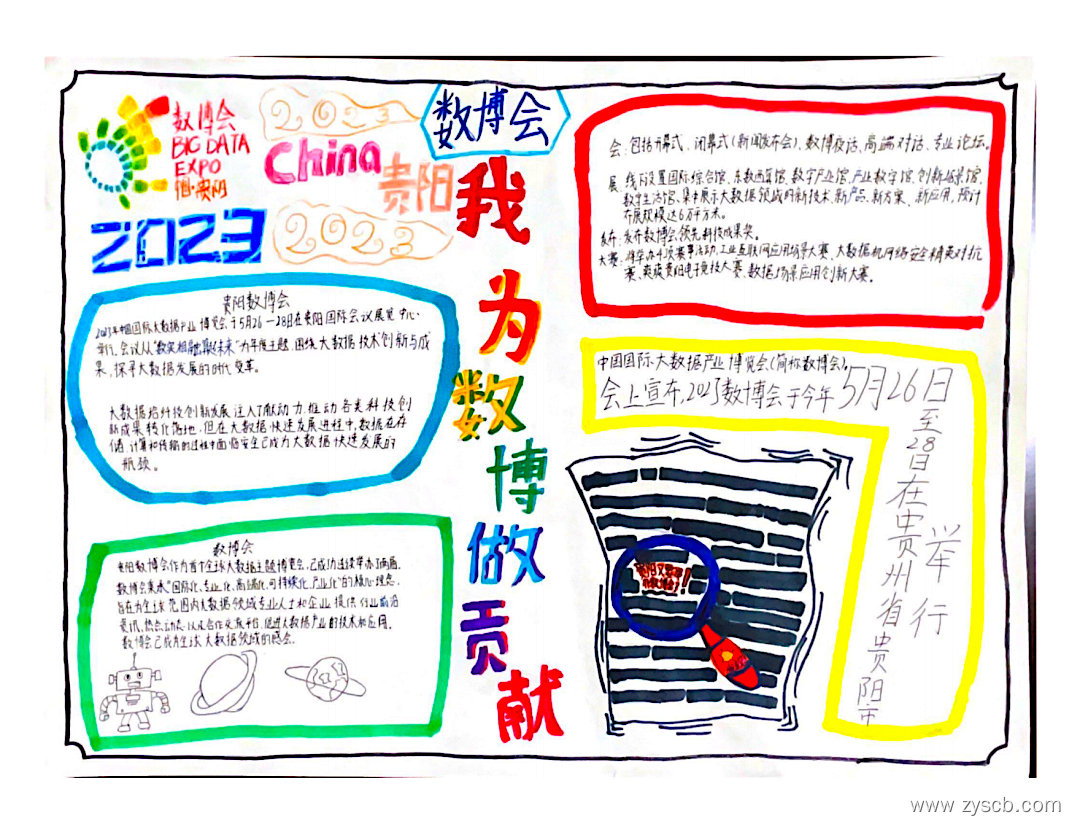 数博会
BIG DATA
EXPO
中国·贵阳
2023
2023
China
贵阳
2023
数博会
我为数博做贡献
贵阳数博会
2023年中国国际大数据产业博览会,于5月26—28日在贵阳国际会议展览中心
举行。会议以“数实相融 算启未来”为年度主题,围绕大数据技术创新与成
果,探寻大数据发展的时代变革。
大数据给科技创新发展注入了新动力,推动各类科技创
新成果转化落地,但在大数据快速发展进程中,数据在存
储、计算和传输的过程中面临安全已成为大数据快速发展的
瓶颈。
数博会
贵阳数博会作为首个全球大数据主题博览会,已成功连续举办
数博会秉承“国际化、专业化、高端化、可持续化、产业化”的核心理念,
旨在为全球范围内大数据领域专业人士和企业提供行业前沿
资讯、热点动态以及合作交流平台,促进大数据产业的技术和应用。
数博会已成为全球大数据领域的盛会。
会:包括开幕式、闭幕式(新闻发布会)、数博夜话、高端对话、专业论坛。
展:线下设置国际综合馆、东数西算馆、数字产业馆、产业数字馆、创新场景馆、
数字生活馆,集中展示大数据领域的新技术、新产品、新方案、新应用,预计
布展规模达6万平方米。
发布:发布数博会领先科技成果奖。
大赛:将举办4项赛事活动,工业互联网应用场景大赛、大数据机网络安全精英对抗
赛、爽爽贵阳电子竞技大赛、数据场景应用创新大赛。
中国国际大数据产业博览会(简称数博会)。
会上宣布,2023数博会于今年5月26日
至28日在贵州省贵阳市
举行